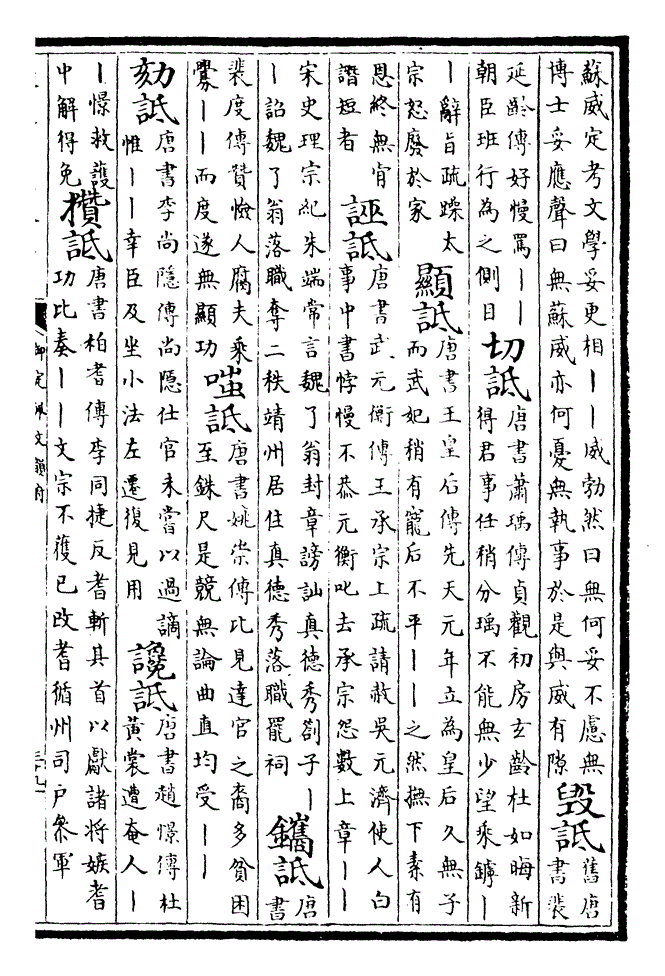 蘇威定考文學妥更相丨丨威勃然曰無何妥不慮無
博士妥應聲曰無蘇威亦何憂無執事於是與威有隙
毀詆
舊唐
書裴
延齡傳好慢罵丨丨
朝臣班行為之側目
切詆
唐書蕭瑀傳貞觀初房玄齡杜如晦新
得君事任稍分瑀不能無少望乘罅丨
丨辭旨疏躁太
宗怒廢於家
顯詆
唐書王皇后傳先天元年立為皇后久無子
而武妃稍有寵后不平丨丨之然撫下素有
恩終無肯
譖短者
誣詆
唐書武元衡傳王承宗上疏請赦吳元濟使人白
事中書悖慢不恭元衡叱去承宗怨數上章丨丨
宋史理宗紀朱端常言魏了翁封章謗訕真德秀劄子丨
丨詔魏了翁落職奪二秩靖州居住真德秀落職罷祠
鑴詆
唐
書
裴度傳贊憸人腐夫乘
釁丨丨而度遂無顯功
嗤詆
唐書姚崇傳比見達官之裔多貧困
至銖尺是競無論曲直均受丨丨
劾詆
唐書李尚隱傳尚隱仕官未嘗以過謫
惟丨丨幸臣及坐小法左遷復見用
讒詆
唐書趙憬傳杜
黃裳遭奄人丨
丨憬救護
中解得免
攢詆
唐書柏耆傳李同捷反耆斬其首以獻諸將嫉耆
功比奏丨丨文宗不獲已改耆循州司戶參軍
御定佩文韻府